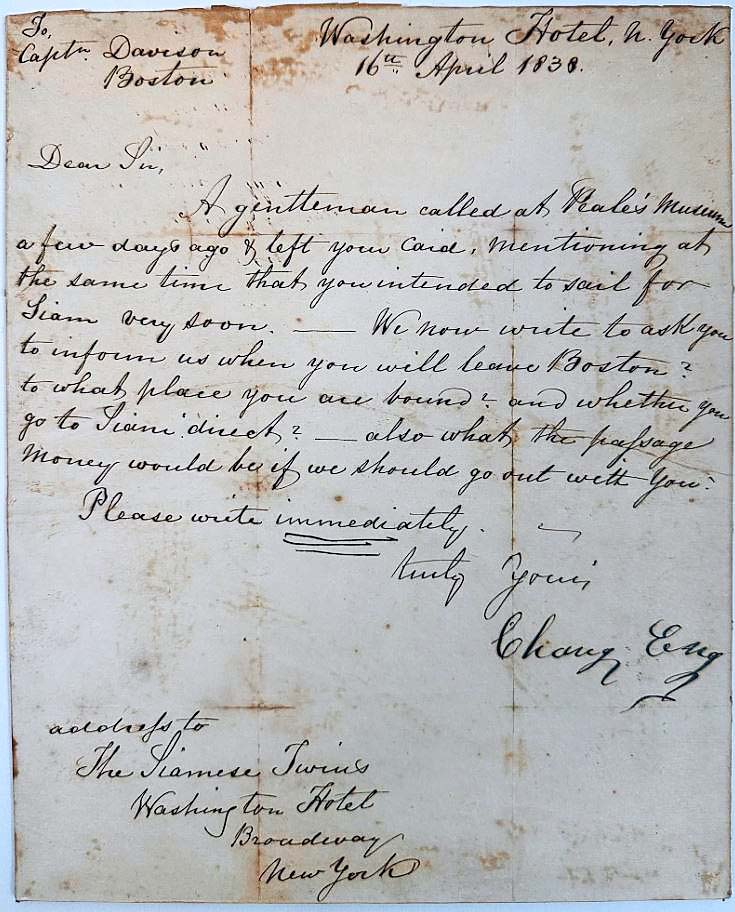 To,
Captn. Davison
Boston
Washington Hotel, N. York
16th April 1838.
Dear Sir,
A gentleman called at Peale's Museum
a few days ago & left your Card, mentioning at
the same time that you intended to sail for
Siam very soon. — We now write to ask you
to inform us when you will leave Boston?
to what place you are bound? and whether you
go to Siam direct? — also what the passage
Money would be if we should go out with You.
Please write immediately.
truly Yours,
Chang Eng
address to
The Siamese Twins
Washington Hotel
Broadway
New York